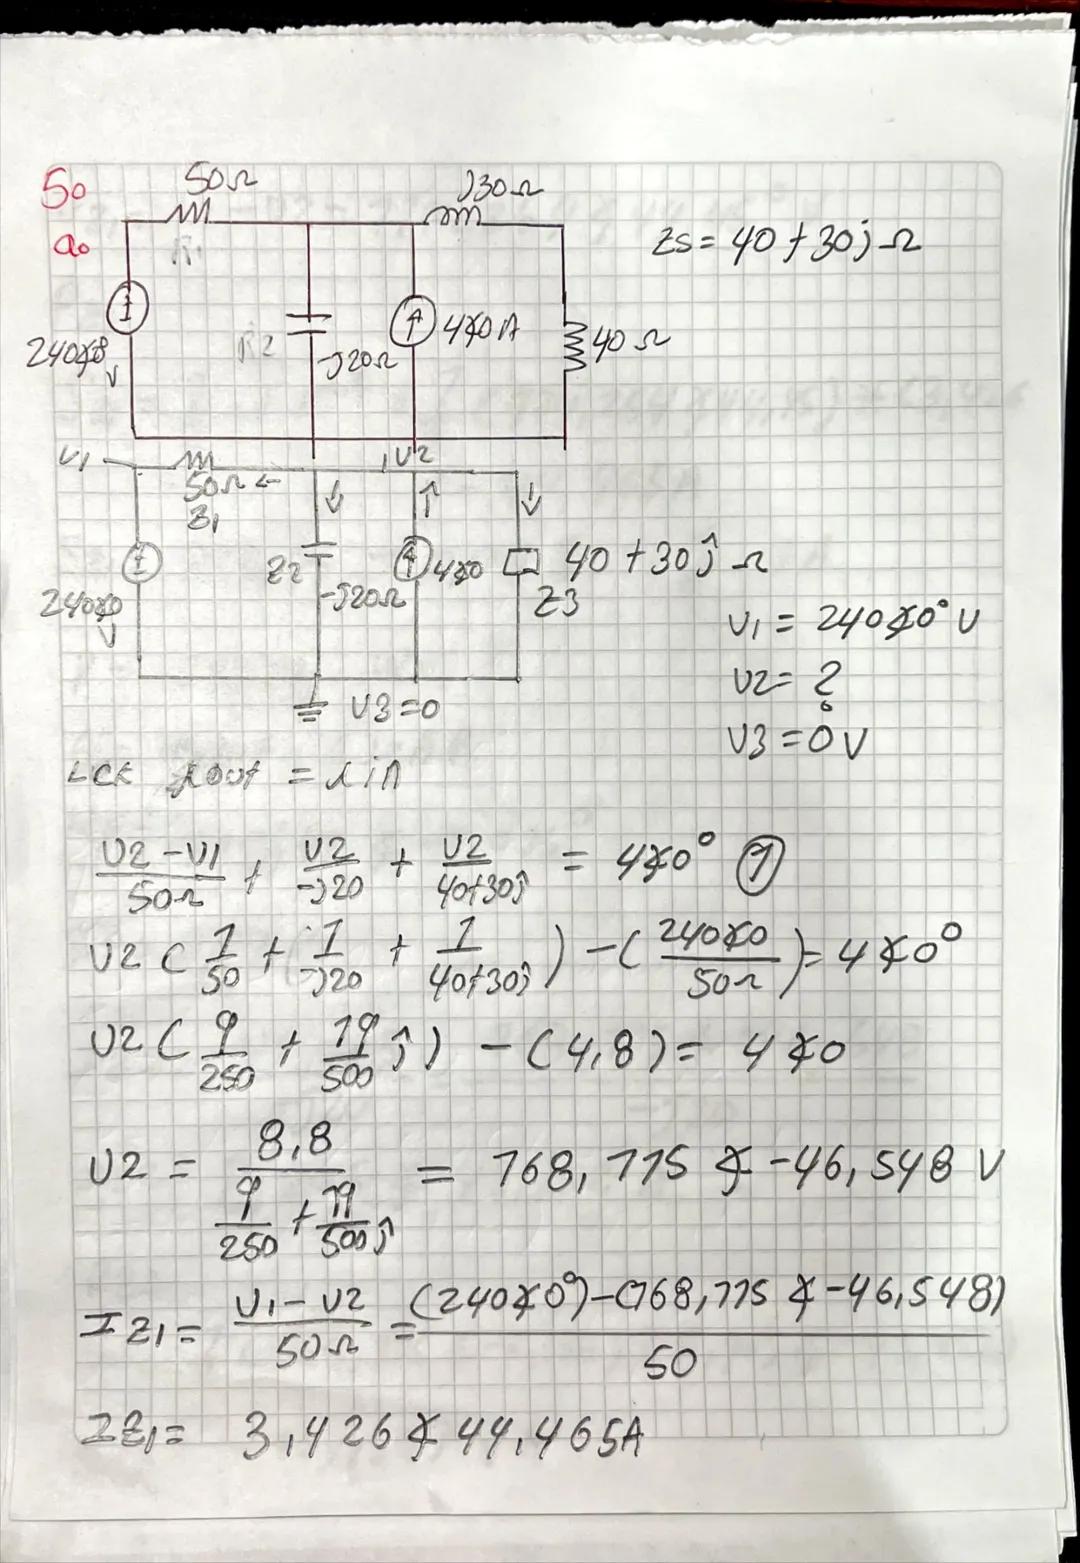 5.
a.
50Ω
j30Ω
R1
Zs = 40 + 30j Ω
240∡0
V
R2
-j20Ω
4∡0 A
40 Ω
V1
V2
50Ω ←
Z1
Z2
-j20Ω
4∡0
40 + 30ĵ Ω
Z3
240∡0
V
V1 = 240∡0° V
V2 = ?
V3 = 0 V
V3 = 0
LCK iout = iin
V2 - V1 / 50Ω + V2 / -j20 + V2 / 40+30ĵ = 4∡0° ①
V2 ( 1/50 + 1/-j20 + 1/40+30ĵ ) - ( 240∡0 / 50Ω ) = 4∡0°
V2 ( 9/250 + 19/500 ĵ ) - (4,8) = 4∡0
V2 = 8,8 / 9/250 + 19/500 ĵ = 168,115 ∡ -46,548 V
IZ1 = V1 - V2 / 50Ω = (240∡0°) - (168,115 ∡ -46,548) / 50
IZ1 = 3,426 ∡ 44,465A